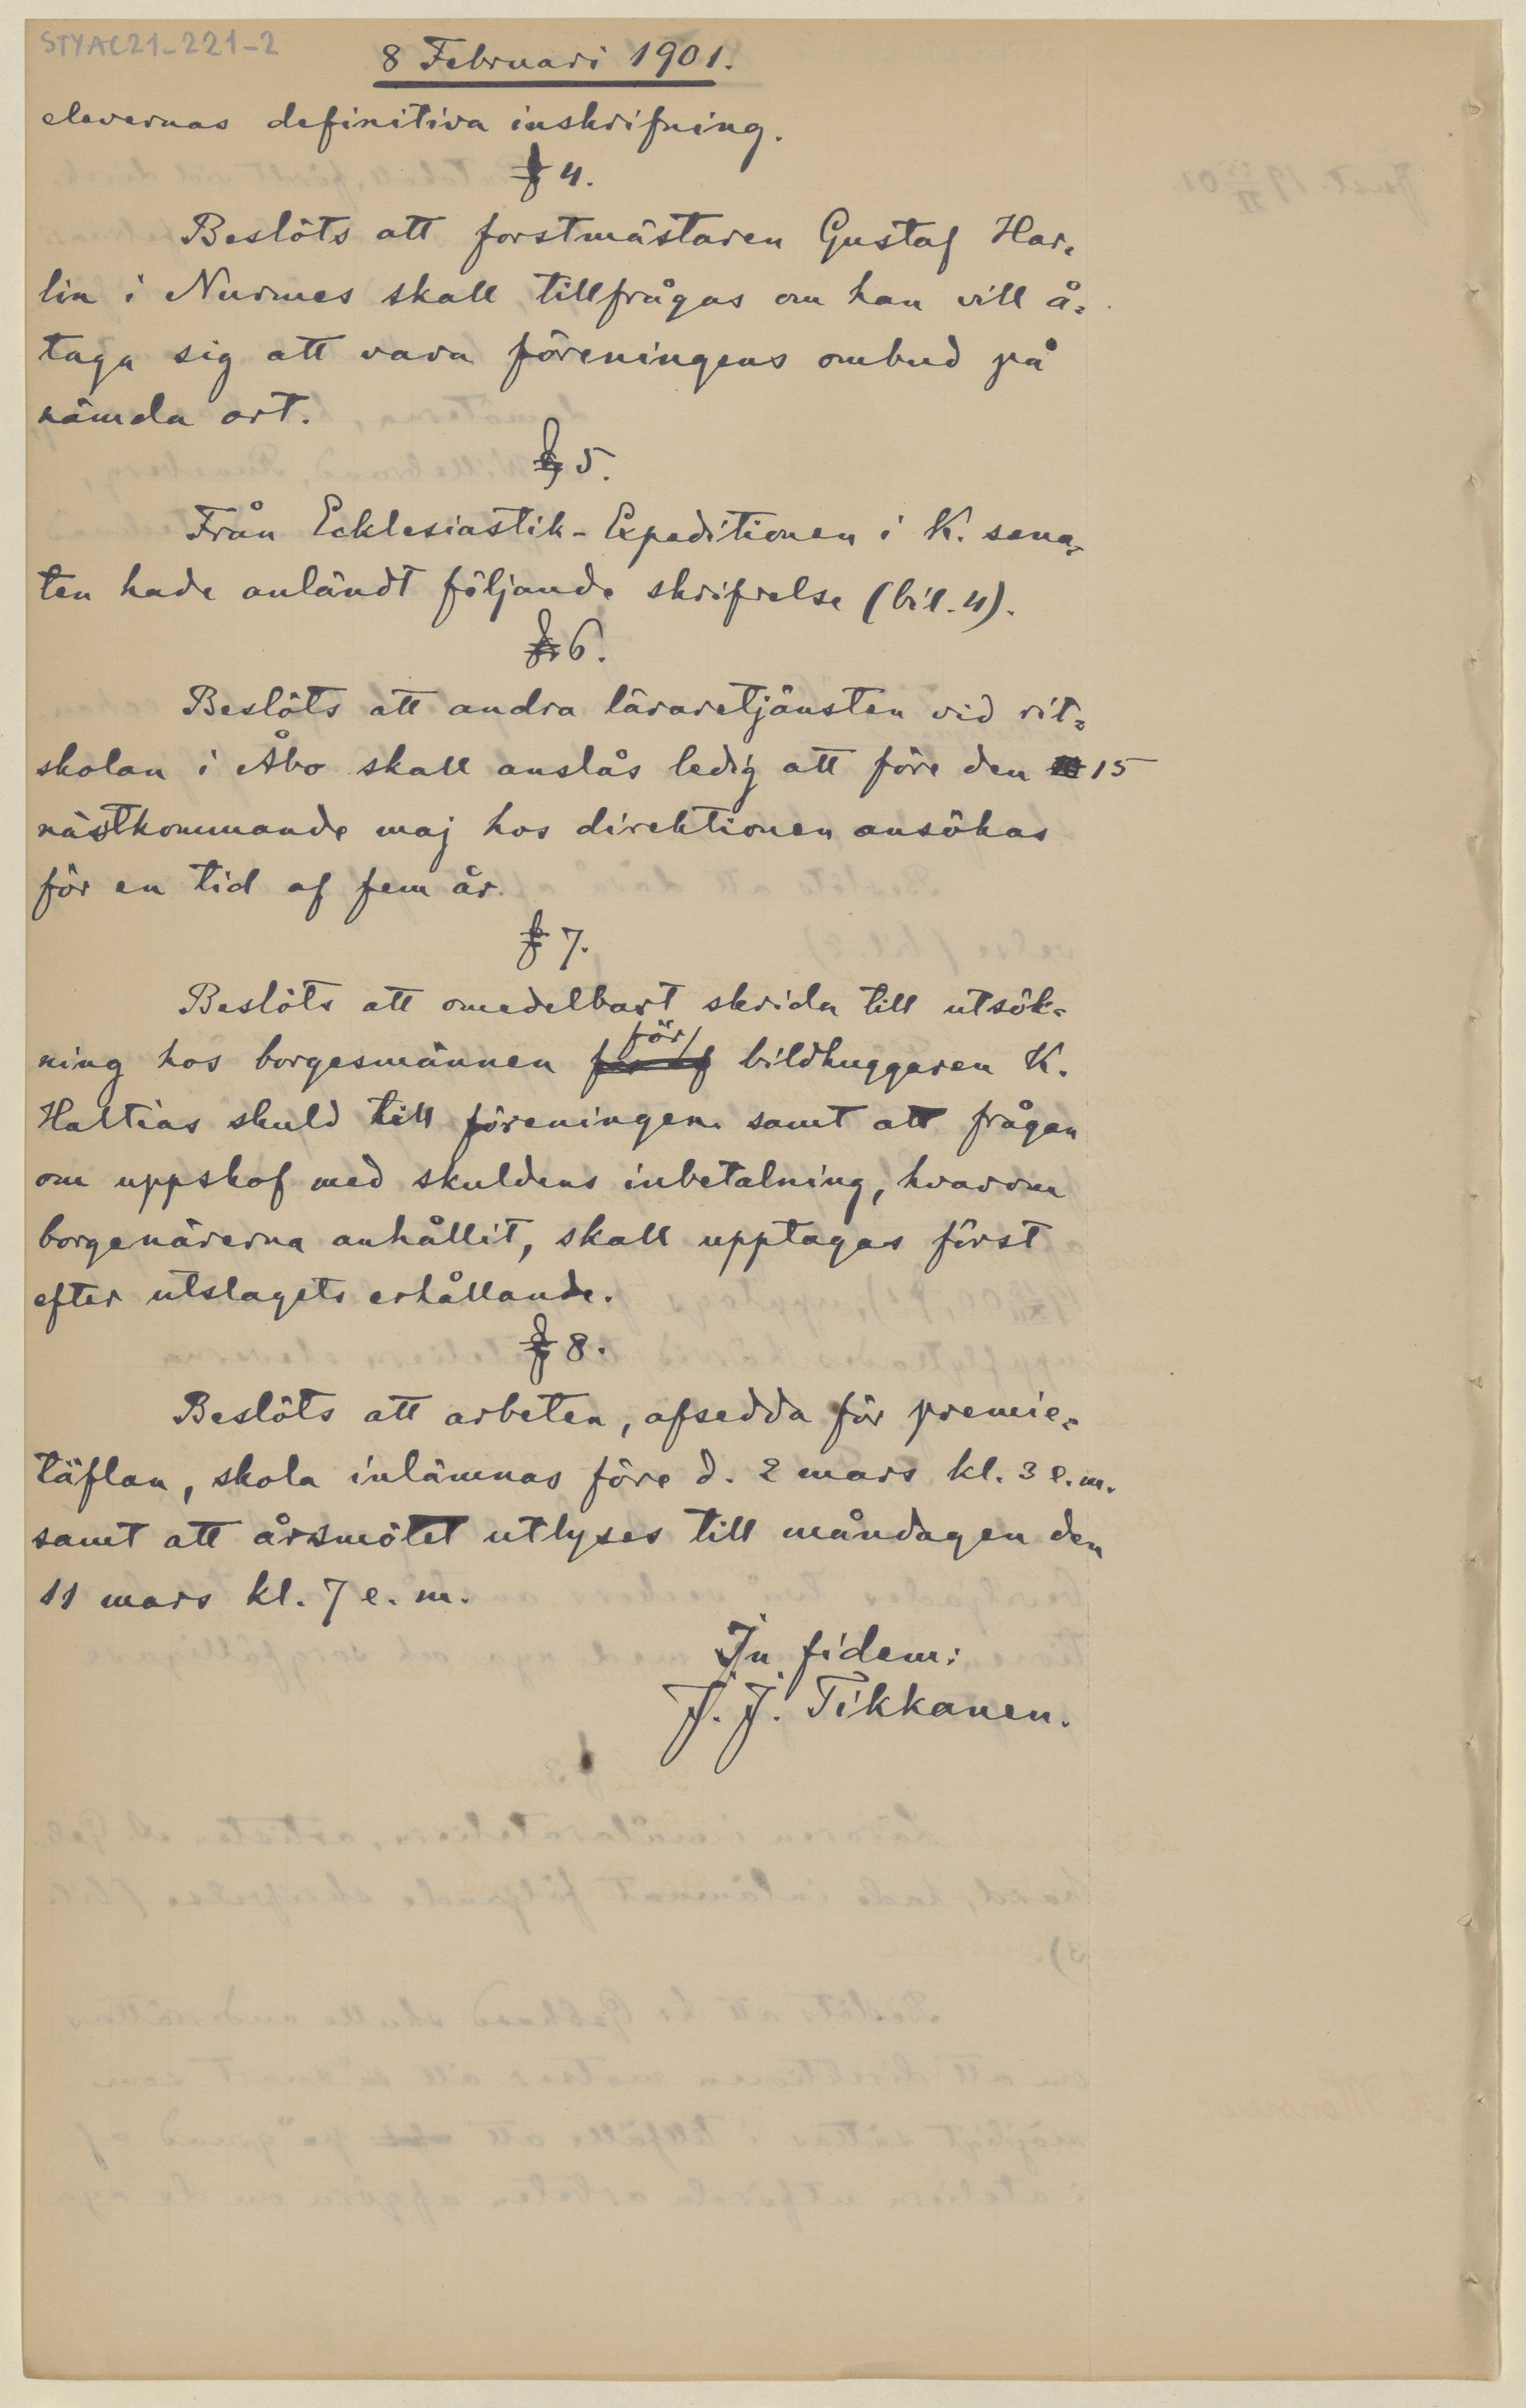 STYAC21-221-2
8 Februari 1901.
elevernas definitiva inskrifning.
§ 4.
Beslöts att forstmästaren Gustaf Har=
lin i Nurmes skall tillfrågas om han vill å=
taga sig att vara föreningens ombud på
nämda ort.
§ 5.
Från Ecklesiastik-Expeditionen i K. sena=
ten hade anländt följande skrifvelse (bil. 4).
§ 6.
Beslöts att andra läraretjänsten vid rit=
skolan i Åbo skall anslås ledig att före den 15
nästkommande maj hos direktionen ansökas
för en tid af fem år.
§ 7.
Beslöts att omedelbart skrida till utsök=
ning hos borgesmännen för bildhuggaren K.
Haltias skuld till föreningen samt att frågan
om uppskof med skuldens inbetalning, hvarom
borgenärerna anhållit, skall upptagas först
efter utslagets erhållande.
§ 8.
Beslöts att arbeten, afsedda för premie=
täflan, skola inlämnas före d. 2 mars kl. 3 e.m.
samt att årsmötet utlyses till måndagen den
11 mars kl. 7 e. m.
In fidem:
J. J. Tikkanen.